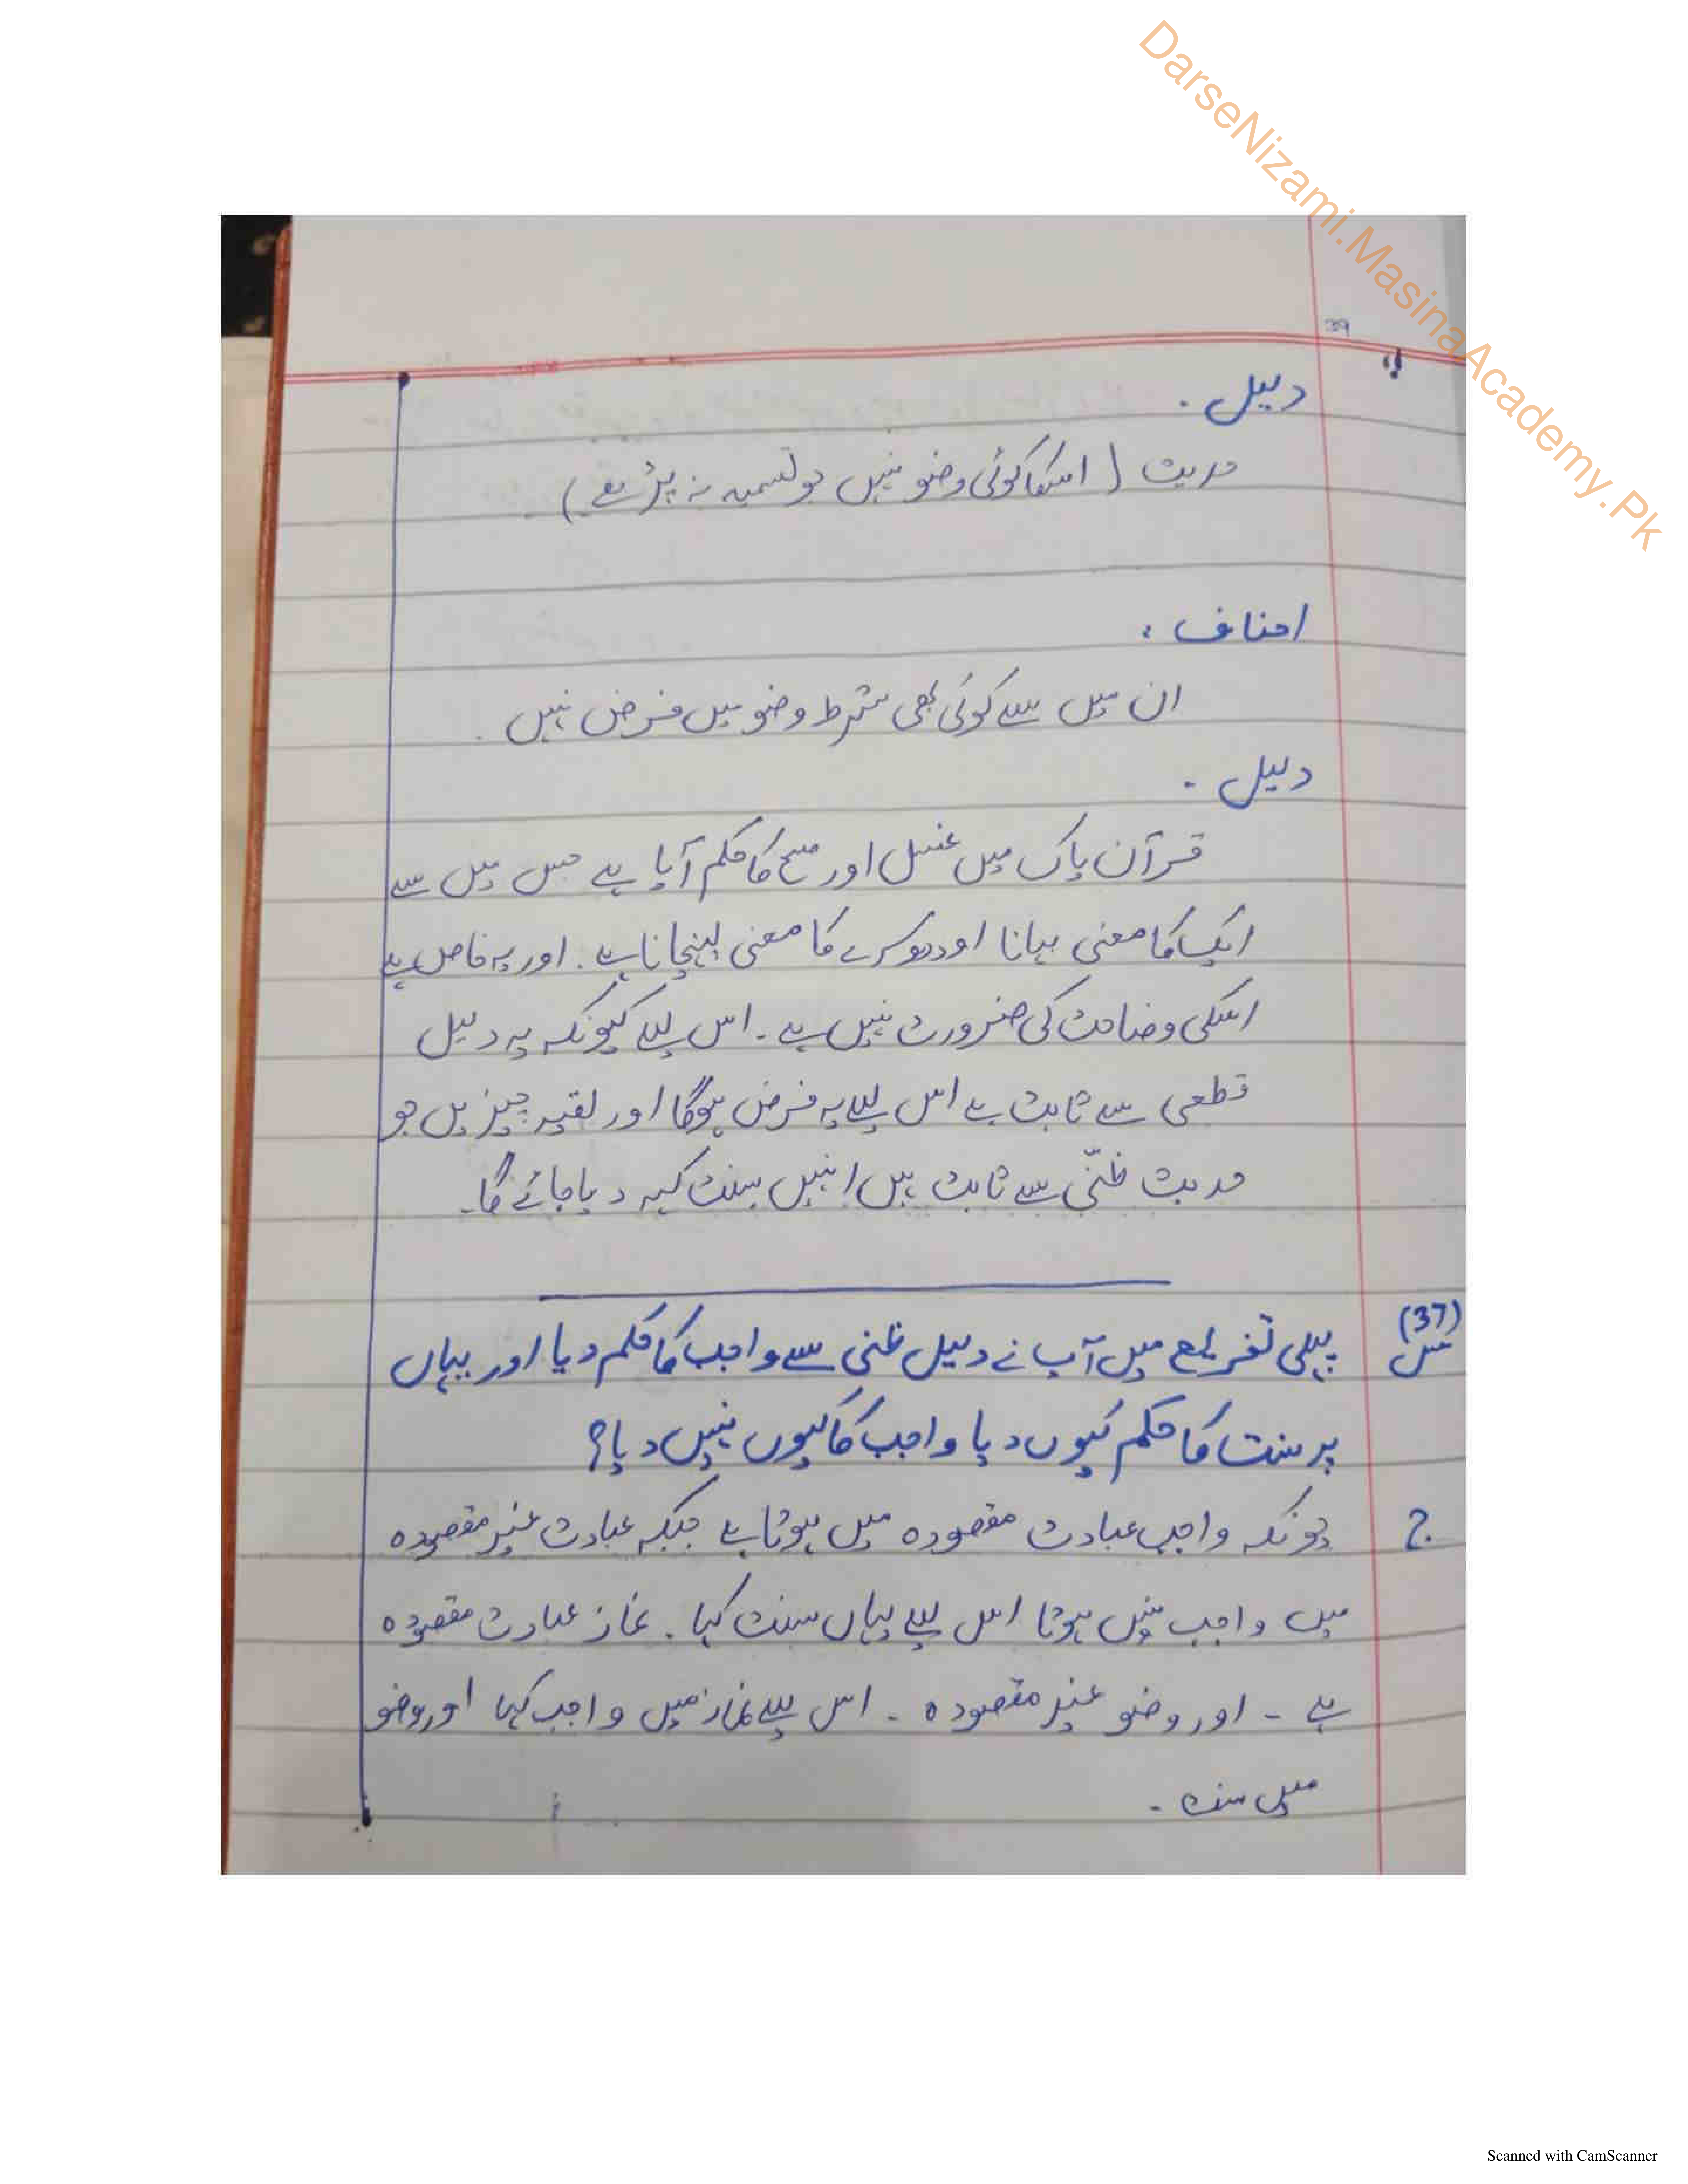 DarseNizami.MasinaAcademy.Pk
39
دلیل .
حدیث ( اسکا کوئی وضو نہیں جو تسمیہ نہ پڑھے ) .
احناف :
ان میں سے کوئی بھی شرط وضو میں فرض نہیں .
دلیل .
قرآن پاک میں غسل اور مسح کا حکم آیا ہے جس میں سے
ایک کا معنی بہانا اور دوسرے کا معنی پہنچانا ہے . اور یہ خاص ہے
اسکی وضاحت کی ضرورت نہیں ہے . اس لیے کیونکہ یہ دلیل
قطعی سے ثابت ہے اس لیے یہ فرض ہوگا اور بقیہ چیزیں جو
حدیث ظنّی سے ثابت ہیں انہیں سنت کہہ دیا جائے گا .
(37)
س پہلی تفریع میں آپ نے دلیل ظنی سے واجب کا حکم دیا اور یہاں
پر سنت کا حکم کیوں دیا واجب کا کیوں نہیں دیا؟
ج چونکہ واجب عبادت مقصودہ میں ہوتا ہے جبکہ عبادت غیر مقصودہ
میں واجب نہیں ہوتا اس لیے یہاں سنت کہا . نماز عبادت مقصودہ
ہے - اور وضو غیر مقصودہ - اس لیے نماز میں واجب کہا اور وضو
میں سنت -
Scanned with CamScanner